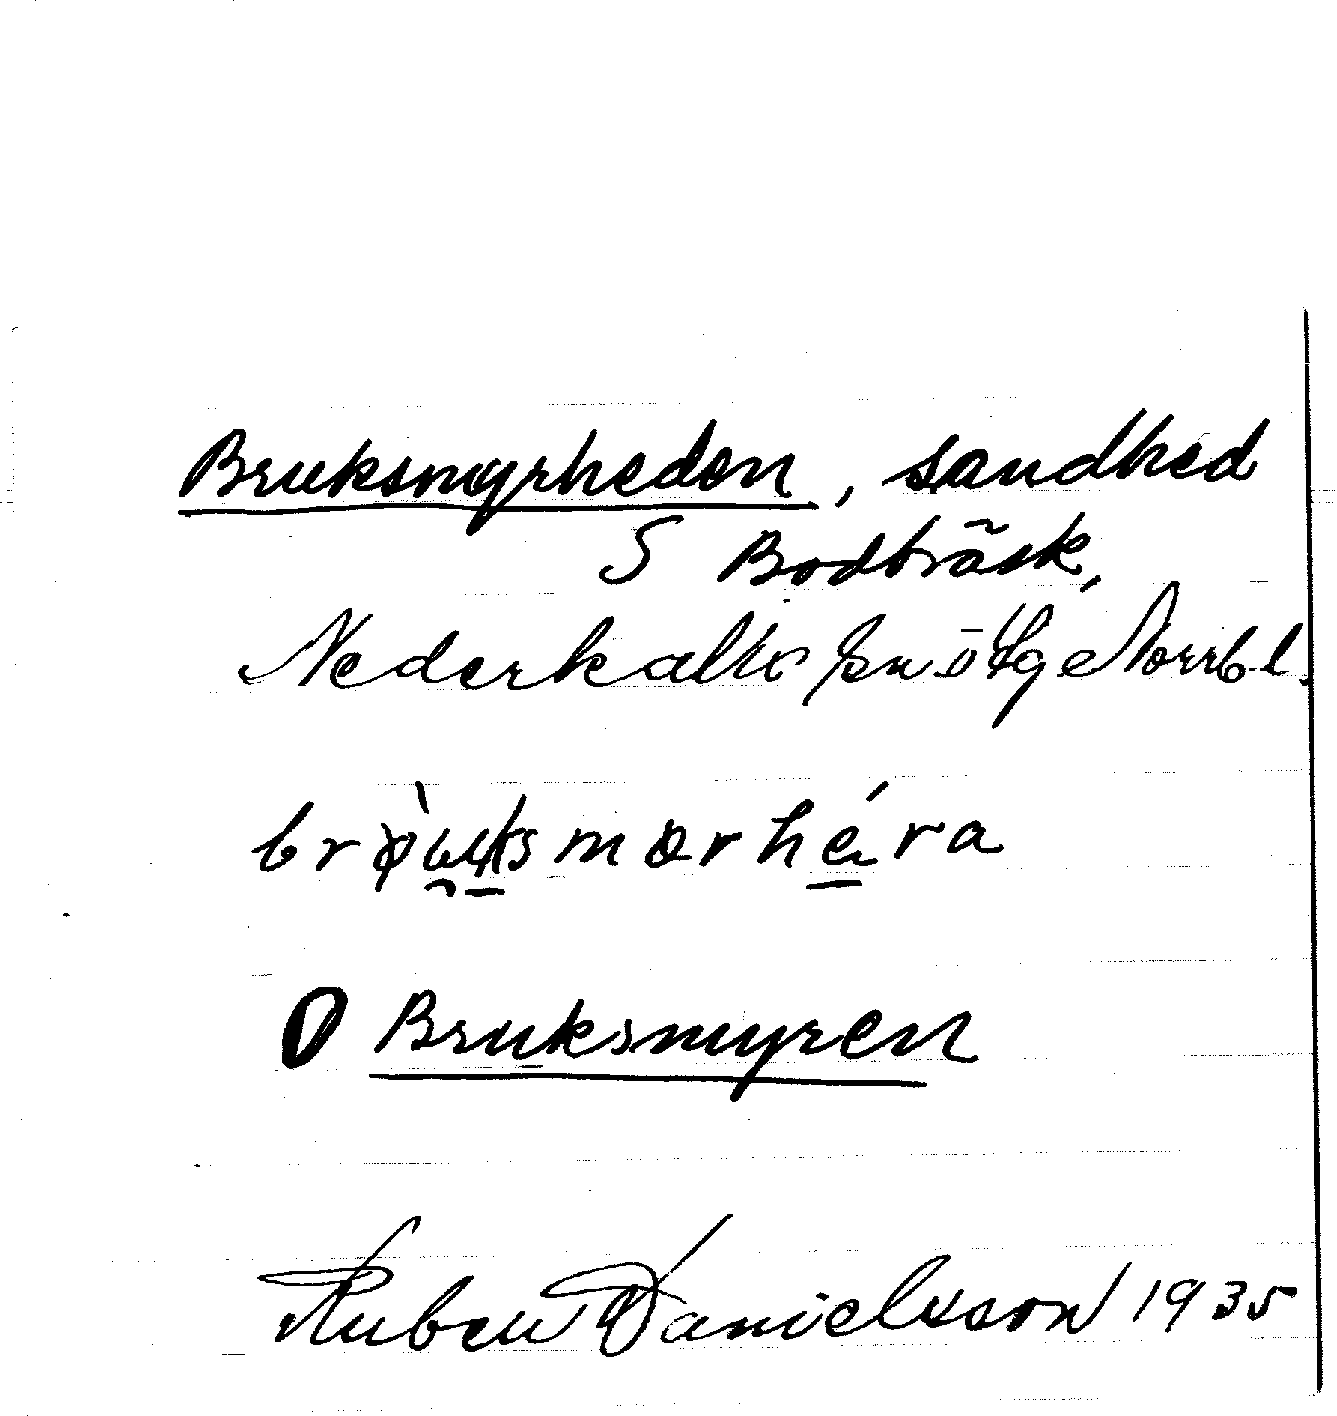 Bruksmyrheden, sandhed
S Bodträsk,
Nederkalix sn o tg Norrb. l.
mɷrhéra
Bruksmyren
Ruben Danielsson 1935